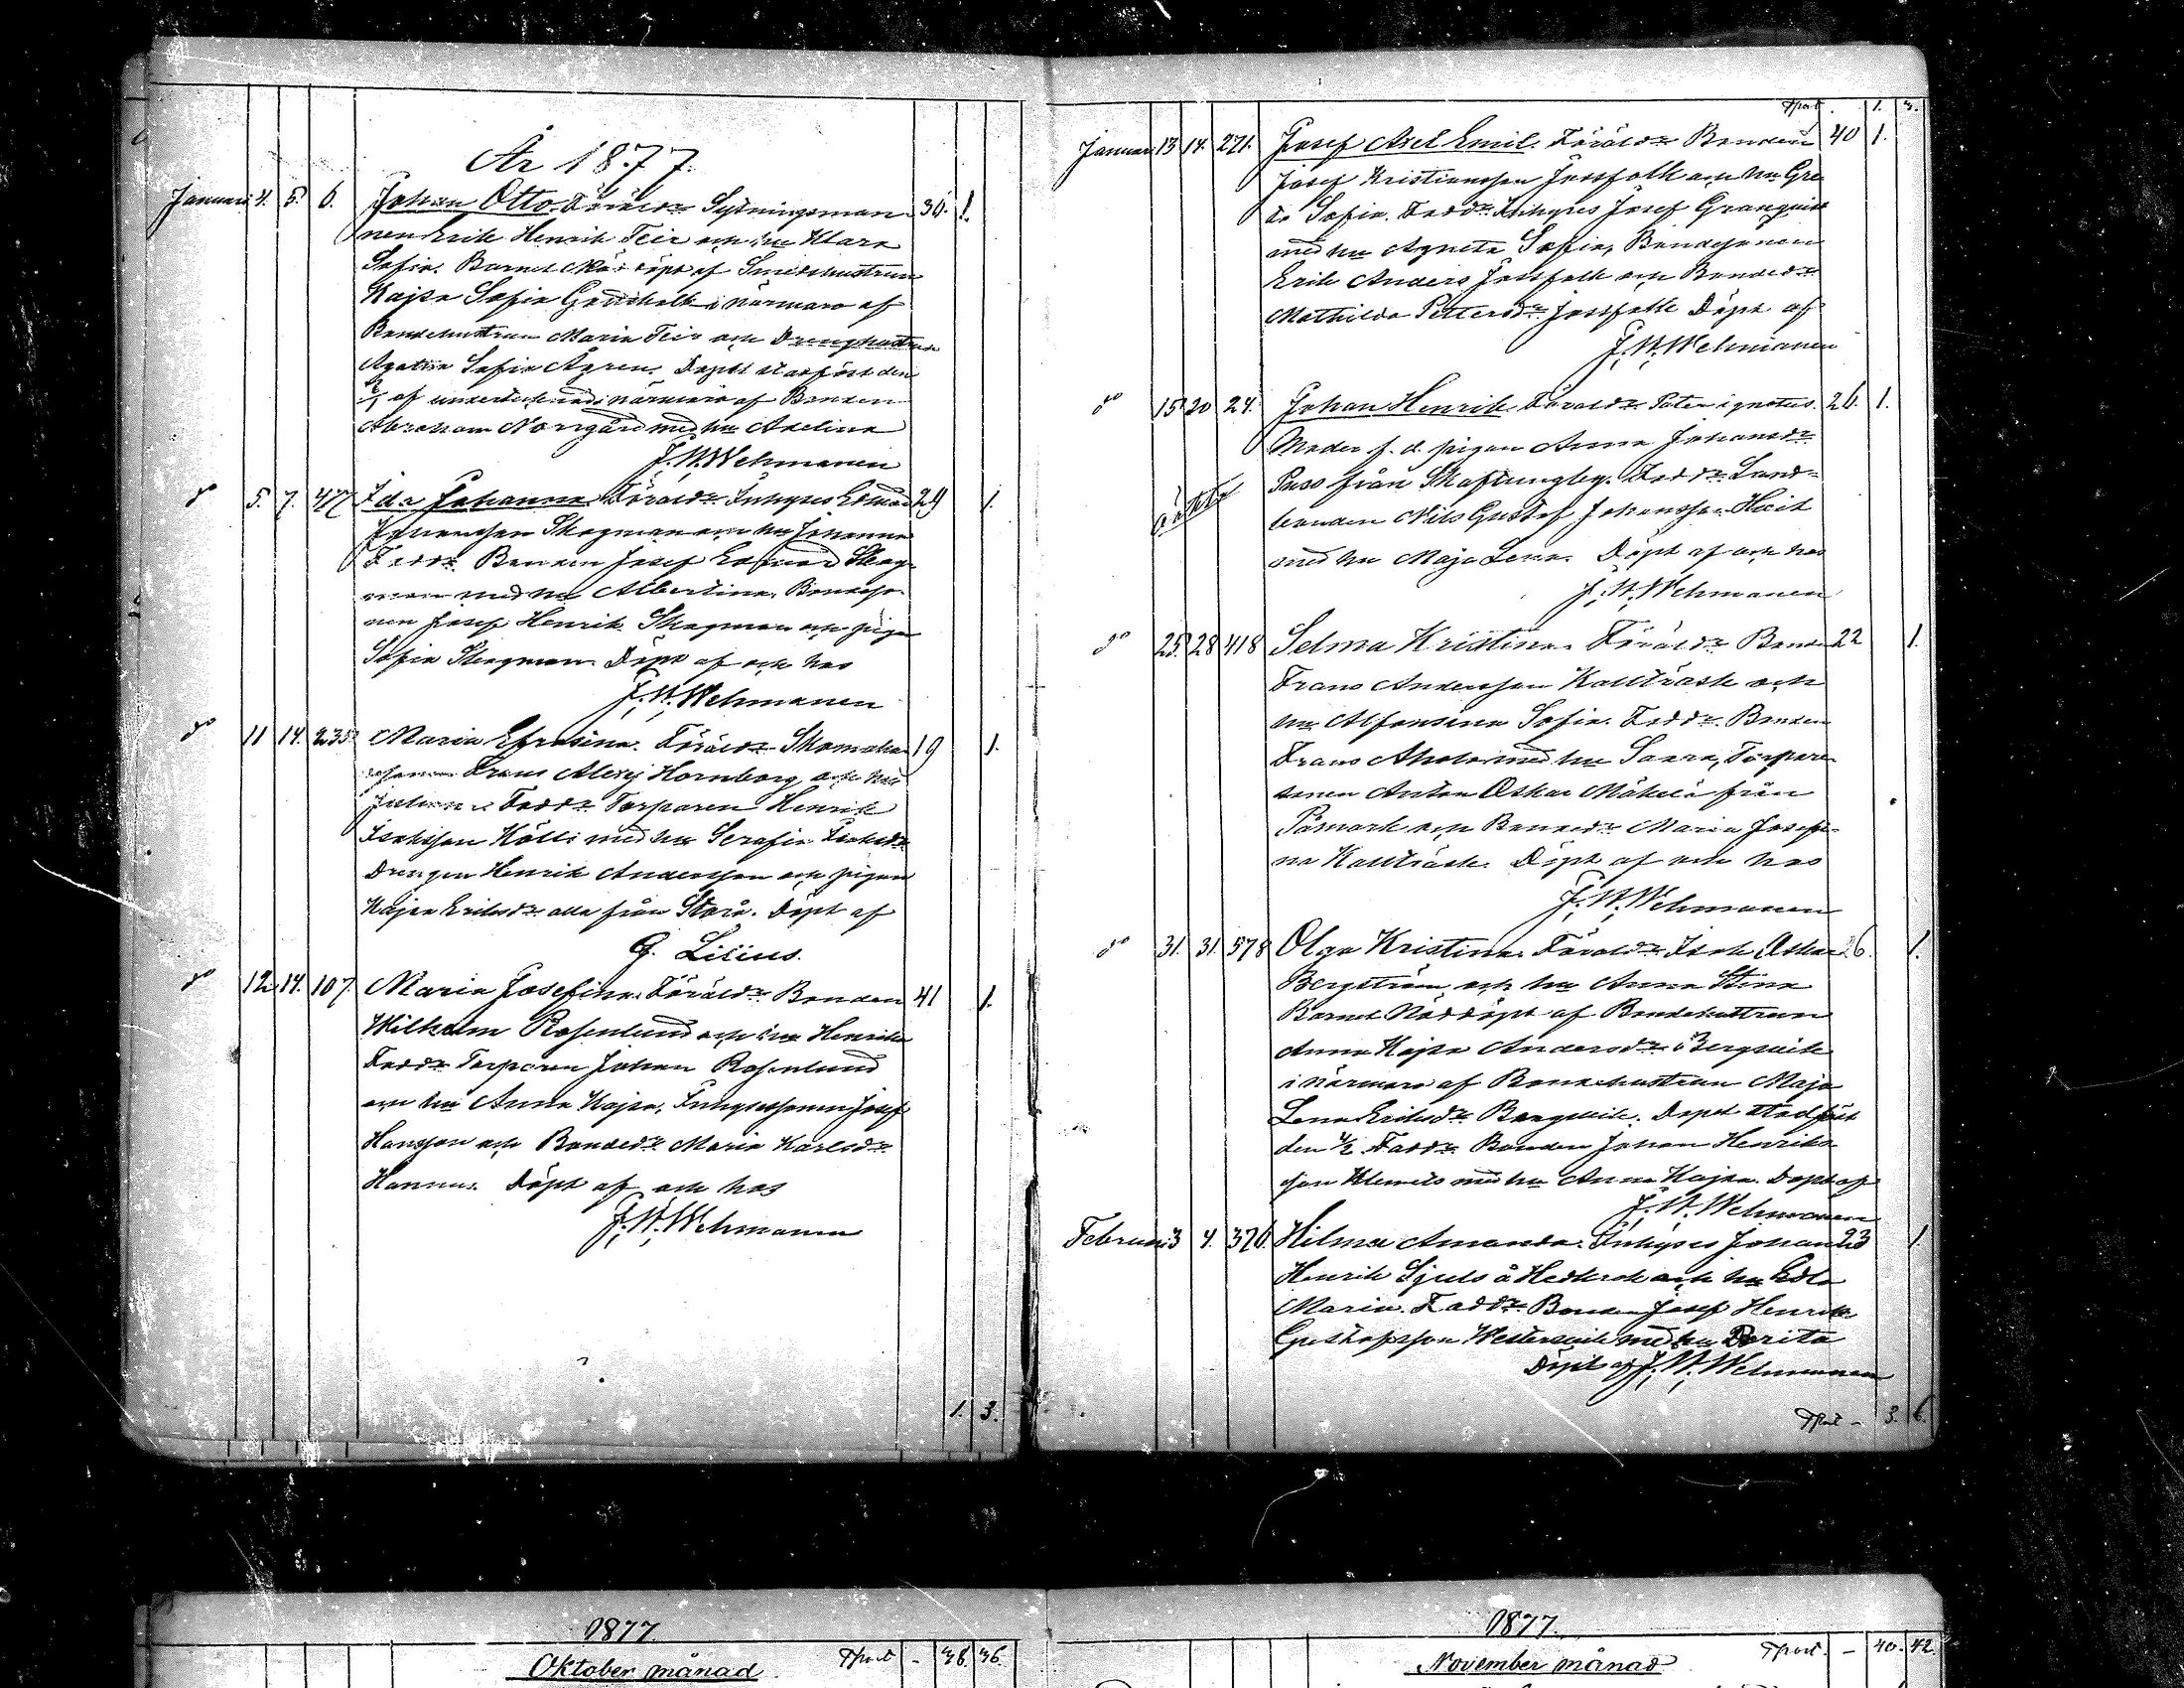 År 1877.
Januari 4. 5. 6. Johan Otto. Föräldr Sytningsman 36. 1.
nen Erik Henrik Teir och hu Klara
Sofia. Barnet döpt af Smedshustrun
Kajsa Sofia i närmaro af
Bondehustrun Maria Teir och Drenghustrun
Sofia Ågren. Dopet stadfäst den
af undertecknad i närmaro af Bonden
Abraham Norrgård med hu Adelina
J. W. Wehmanen
do 5. 7. 47 Ida Johanna. Föräldr Inhyses Edvard 29 1.
Johansson Skogman och hu Johanna
Faddr Bonden Josef Edvard Skog-
man med hu Albertina, Bondeso-
nen Josef Henrik Skogman och pigan
Sofia Skogman. Döpt af och hos
J. W. Wehmanen
do 11 14. 235 Maria Efrosina. Föräldr Skomakare 19 1.
Frans Alexej Hornborg och hu
Faddr Torparen Henrik
Isaksson Kötti med hu Serafia
Drengen Henrik Andersson och pigan
Kajsa Eriksdr alla från Storå. Döpt af
G. Lilius.
do 12 14. 107. Maria Josefina. Föräldr Bonden 41 1.
Wilhelm Rosenlund och hu Henrika
Faddr Torparen Johan Rosenlund
och hu Anna Kajsa, Inhysessonen Josef
Hansson och Bondedr Maria Karlsdr
Hannus. Döpt af och hos
J. W. Wehmanen
1. 3.
Tpört 1. 3.
Januari 13 14. 271. Josef Axel Emil. Föräldr Bonden 40 1.
Josef Kristiansson Jossfolk och hu Gre
ta Sofia. Faddr Inhyses Josef Granqvist
med hu Agneta Sofia, Bondesonen
Erik Anders Jossfolk och Bondedr
Mathilda Pettersdr Jossfolk Döpt af
J. W. Wehmanen
do 15 20 24. Johan Henrik. Föräldr Pater ignotus. 26. 1.
Moder f. d. pigan Anna Johansdr
Puss från Skaftungby. Faddr Land-
bonden Nils Gustaf Johansson
med hu Maja Lena. Döpt af och hos
J. W. Wehmanen
oäkta
do 25. 28 418 Selma Kristina. Föräldr Bonden 22 1.
Frans Andersson Kallträsk och
hu Alfonsina Sofia. Faddr Bonden
Frans med hu Saara, Torpare
sonen Anton Oskar Mäkelä från
Påmark och Bondedr Maria Josefi-
na Kallträsk. Döpt af och hos
J. W. Wehmanen
do 31. 31. 578 Olga Kristina. Föräldr Isak Oskar 26. 1.
Bergström och hu Anna Stina
Barnet Nöddöpt af Bondehustrun
Anna Kajsa Andersdr Bergvik
i närmaro af Bondehustrun Maja
Lena Eriksdr Bergvik. Dopet stadfäst
den Faddr Bonden Johan Henriks
son Klemets med hu Anna Kajsa. Döpt af
J. W. Wehmanen
Februari 3 4. 326. Hilma Amanda. Inhyses Johan 23 1.
Henrik Sjuls å och hu Edla
Maria. Faddr Bonden Josef Henrik
Gustafsson Westervik med hu Dorita
Döpt af J. W. Wehmanen
Tpört - 3. 6.
1877.
Oktober månad Tport - 38. 36.
1877.
November månad Tport. - 40. 42.